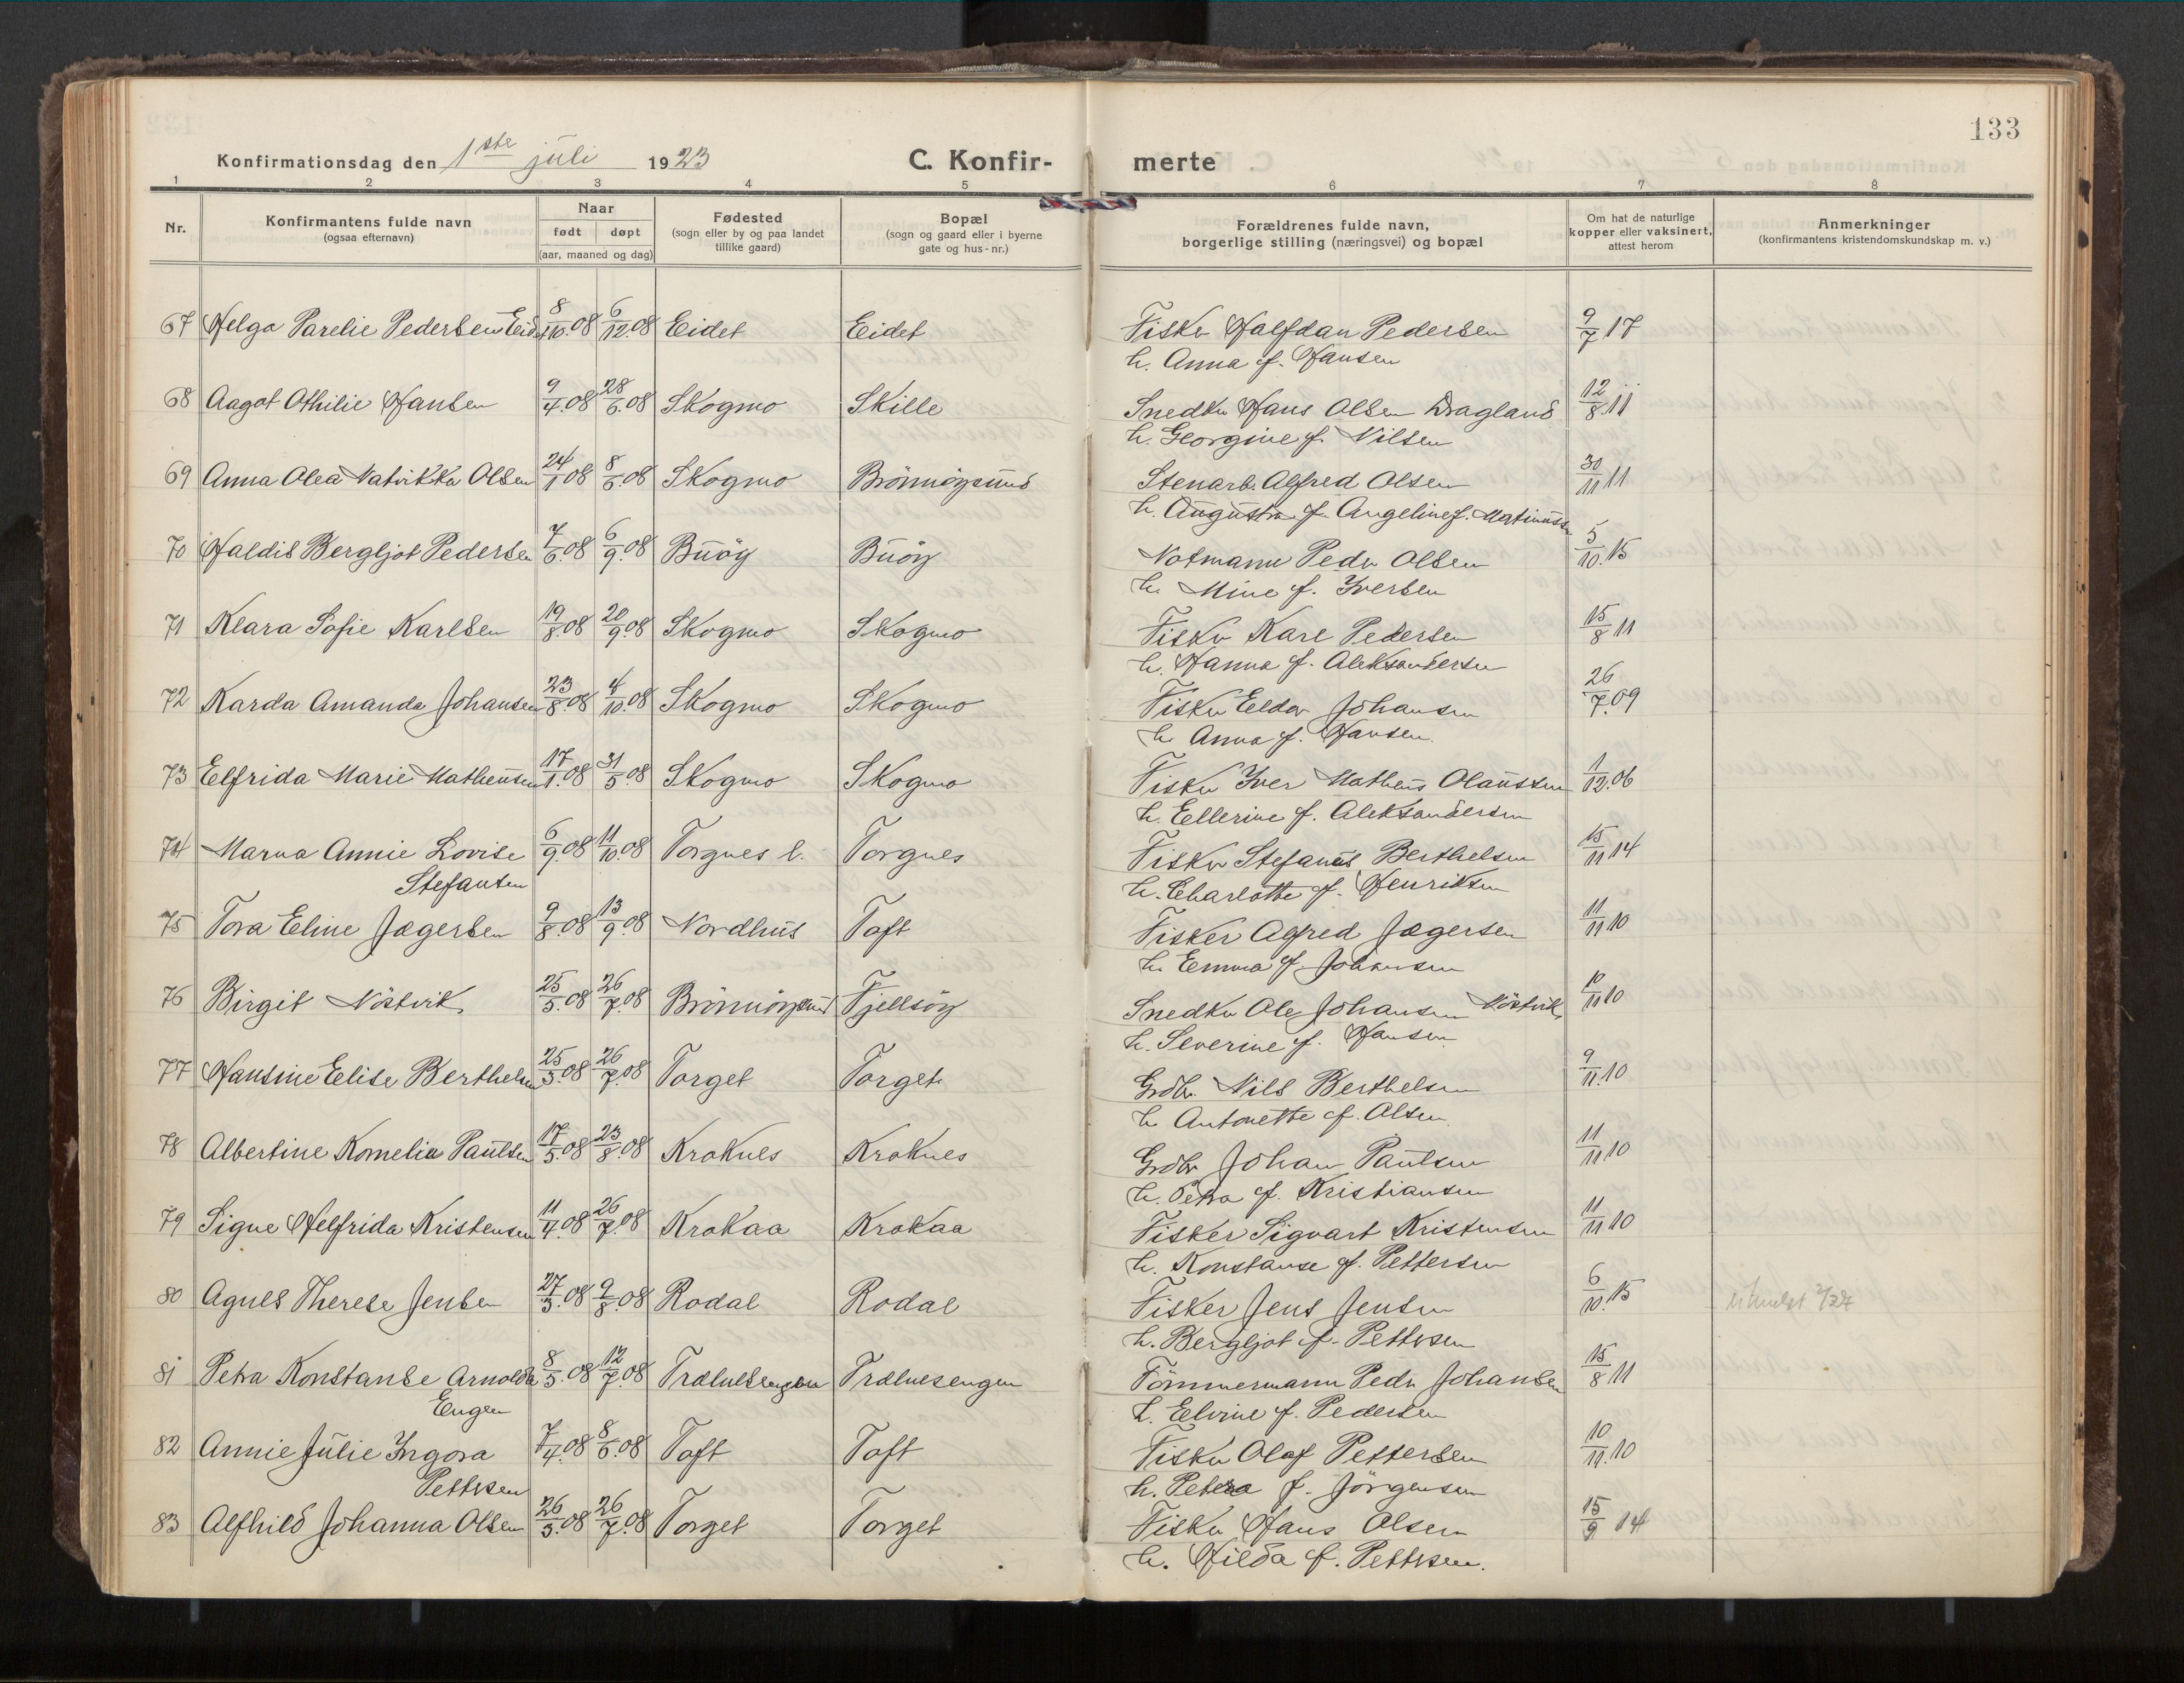 133
Konfirmationsdag den 1ste juli 1923
C. Konfir-
merte
1 2 3 4 5 6 7 8
Nr.
Konfirmantens fulde navn
(ogsaa efternavn)
Naar
født døpt
(aar, maaned og dag)
Fødested
(sogn eller by og paa landet
tillike gaard)
Bopæl
(sogn og gaard eller i byerne
gate og hus-nr.)
Forældrenes fulde navn,
borgerlige stilling (næringsvei) og bopæl
Om hat de naturlige
kopper eller vaksinert,
attest herom
Anmerkninger
(konfirmantens kristendomskundskap m. v.)
67 Helga Parelie Pedersen 8/10.08 6/12.08 Eidet Eidet Fisker Halfdan Pedersen 9/7 17
h. Anna f. Hansen
68 Aagot Othilie Hansen 9/4.08 28/6.08 Skogmo Skille Snedker Hans Olsen Dragland 12/8.11
h. Georgine f. Nilsen
69 Anna Olea Olsen 24/1 08 8/6.08 Skogmo Brönnöysund Stenarb. Alfred Olsen 30/11 11
h. Angeline f. Martinuss
70 Haldis Bergljot Pedersen 7/6.08 6/9.08 Buöy Buöy Notmann Peder Olsen 5/10.15
h. Mine f. Iversen
71 Klara Sofie Karlsen 19/8.08 20/9.08 Skogmo Skogmo Fisker Karl Pedersen 15/8 11
h. Hanna f. Aleksandersen
72 Karda Amanda Johansen 23/8.08 4/10.08 Skogmo Skogmo Fisker Eldor Johansen 26/7.09
h. Anna f. Hansen
73 Elfrida Marie Matheusen 17/1.08 31/5.08 Skogmo Skogmo Fisker Iver Matheus Olaussen 1/12.06
h. Ellerine f. Aleksandersen
74 Marna Annie Lovise 6/9.08 11/10.08 Torgnes l. Torgnes Fisker Stefanus Berthelsen 15/11 14
Stefansen
h. Charlotte f. Henriksen
75 Tora Eline Jægersen 9/8.08 13/9.08 Nordhus Toft Fisker Alfred Jægersen 11/11 10
h. Emma f. Johansen
76 Birgit Nöstvik 25/5.08 26/7.08 Brönnöysund Fjellsöy Snedker Ole Johansen Nöstvik 10/11 10
h. Severine f. Hansen
77 Hansine Elise Berthelsen 25/5.08 26/7.08 Torget Torget Grdbr. Nils Berthelsen 9/11.10
h. Antonette f. Olsen
78 Albertine Kornelia Paulsen 17/5.08 23/8.08 Kroknes Kroknes Grdbr Johan Paulsen 11/11 10
h. Petra f. Kristiansen
79 Signe Helfrida Kristensen 11/4.08 26/7.08 Krokaa Krokaa Fisker Sigvart Kristensen 11/11 10
h. Konstanse f. Pettersen
80 Agnes Therese Jensen 27/3.08 9/8.08 Rodal Rodal Fisker Jens Jensen 6/10.15
h. Bergljot f. Pettersen
81 Petra Konstanse Arnolda 8/5.08 12/7.08 Trælnesengen Trælnesengen Tömmermann Peder Johansen 15/8 11
Engen
h. Elvine f. Pedersen
82 Annie Julie Ingora 7/4.08 8/6.08 Toft Toft Fisker Olaf Pettersen 10/11.10
Pettersen
h. Petra f. Jörgensen
83 Alfhild Johanna Olsen 26/3.08 26/7.08 Torget Torget Fisker Hans Olsen 15/9 14
h. Hilda f. Pettersen.